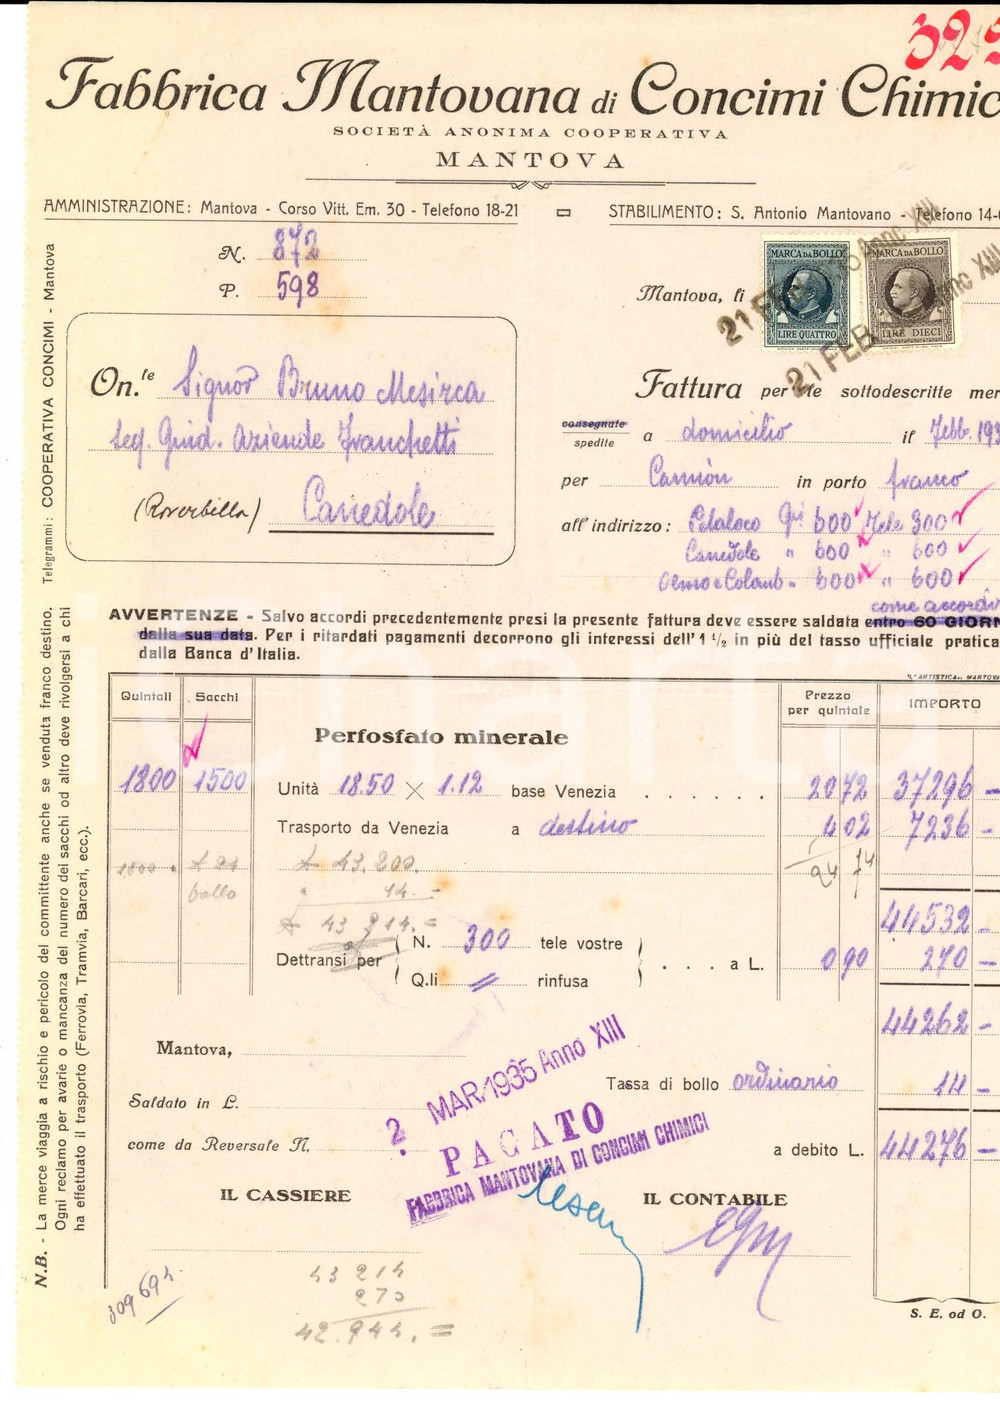 Fabbrica Mantovana di Concimi Chimic
SOCIETÀ ANONIMA COOPERATIVA
MANTOVA
AMMINISTRAZIONE: Mantova - Corso Vitt. Em. 30 - Telefono 18-21
STABILIMENTO: S. Antonio Mantovano - Telefono 14-
N. 872
P. 598
Mantova, lì
MARCA DA BOLLO
LIRE QUATTRO
MARCA DA BOLLO
LIRE DIECI
21 FEB Anno XIII
21 FEB Anno XIII
On.le Signor Bruno Mesirca
Seg. Guid. Aziende Franchetti
(Roverbella) Canedole
Fattura per le sottodescritte mer
consegnate
spedite a domicilio il Febb. 193
per Camion in porto franco
all'indirizzo: Petaloco Qi 600 Tele 300
Canedole " 600 " 600
Olmo e Colomb. " 600 " 600
come accordi
AVVERTENZE - Salvo accordi precedentemente presi la presente fattura deve essere saldata entro 60 GIORN
dalla sua data. Per i ritardati pagamenti decorrono gli interessi dell'1 1/2 in più del tasso ufficiale pratica
dalla Banca d'Italia.
"L'ARTISTICA" MANTOVA
Quintali Sacchi Prezzo per quintale IMPORTO
Perfosfato minerale
1800 1500 Unità 18.50 × 1.12 base Venezia . . . . . . 20 72 37296 -
Trasporto da Venezia a destino 4 02 7236 -
24 74
1800
bollo
£ 43.200.
" 14.-
£ 43 214.=
44532 -
Dettransi per N. 300 tele vostre . . . a L. 0 90 270 -
Q.li = rinfusa
44262 -
Mantova,
Tassa di bollo ordinario 14 -
Saldato in £.
come da Reversale N.
a debito L. 44276 -
2 MAR. 1935 Anno XIII
PAGATO
FABBRICA MANTOVANA DI CONCIMI CHIMICI
IL CASSIERE
IL CONTABILE
43 214
270
42.944.=
S. E. od O.
Telegrammi: COOPERATIVA CONCIMI - Mantova
N.B. - La merce viaggia a rischio e pericolo del committente anche se venduta franco destino.
Ogni reclamo per avarie o mancanza del numero dei sacchi od altro deve rivolgersi a chi
ha effettuato il trasporto (Ferrovia, Tramvia, Barcari, ecc.).